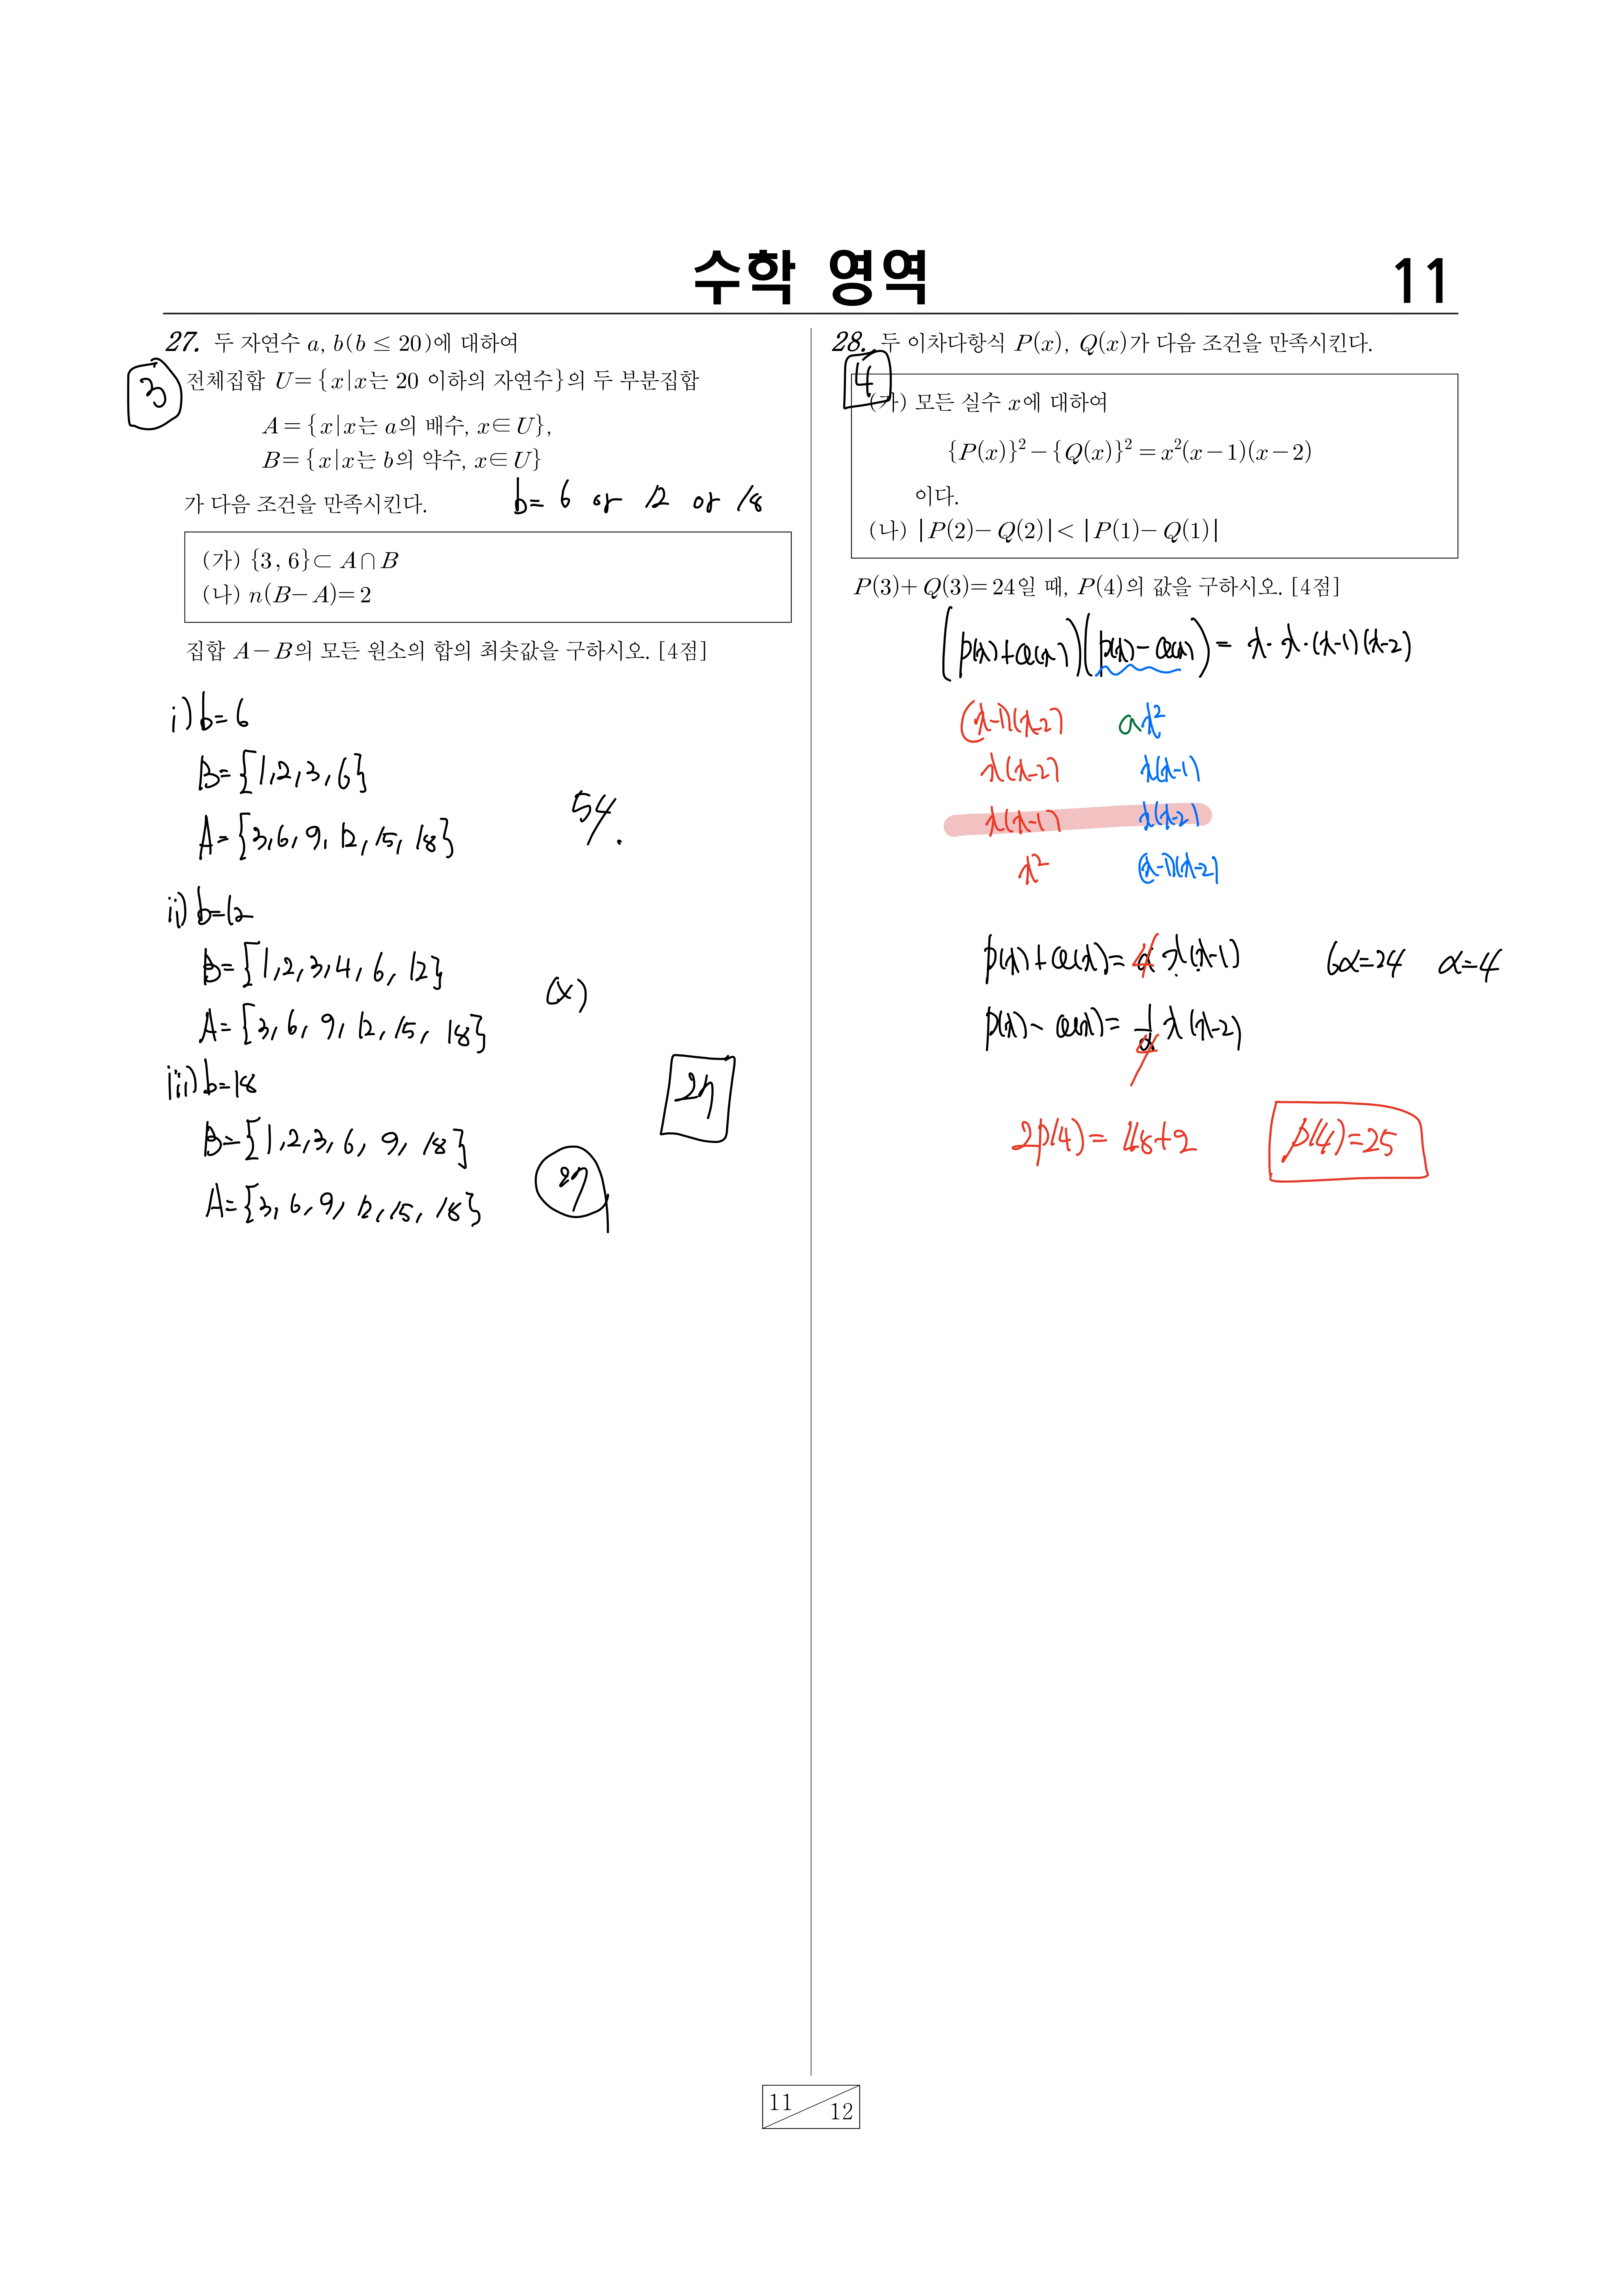 수학 영역
11
27. 두 자연수 a, b(b ≤ 20)에 대하여
3
전체집합 U={x|x는 20 이하의 자연수}의 두 부분집합
A={x|x는 a의 배수, x∈U},
B={x|x는 b의 약수, x∈U}
가 다음 조건을 만족시킨다.
b= 6 or 12 or 18
(가) {3, 6}⊂ A∩B
(나) n(B-A)=2
집합 A-B의 모든 원소의 합의 최솟값을 구하시오. [4점]
i) b=6
B={1,2,3,6}
A={3,6,9,12,15,18}
54.
ii) b=12
B={1,2,3,4,6,12}
A={3,6,9,12,15,18}
(x)
iii) b=18
B={1,2,3,6,9,18}
A={3,6,9,12,15,18}
27
27
28. 두 이차다항식 P(x), Q(x)가 다음 조건을 만족시킨다.
4
(가) 모든 실수 x에 대하여
{P(x)}²-{Q(x)}²=x²(x-1)(x-2)
이다.
(나) |P(2)-Q(2)|<|P(1)-Q(1)|
P(3)+Q(3)=24일 때, P(4)의 값을 구하시오. [4점]
(P(x)+Q(x))(P(x)-Q(x))= x·x·(x-1)(x-2)
(x-1)(x-2) ax²
x(x-2) x(x-1)
x(x-1) x(x-2)
x² (x-1)(x-2)
P(x)+Q(x)= 4 x(x-1) 6α=24 α=4
P(x)-Q(x)= 1/4 x(x-2)
2P(4)= 48+2
P(4)=25
11
12